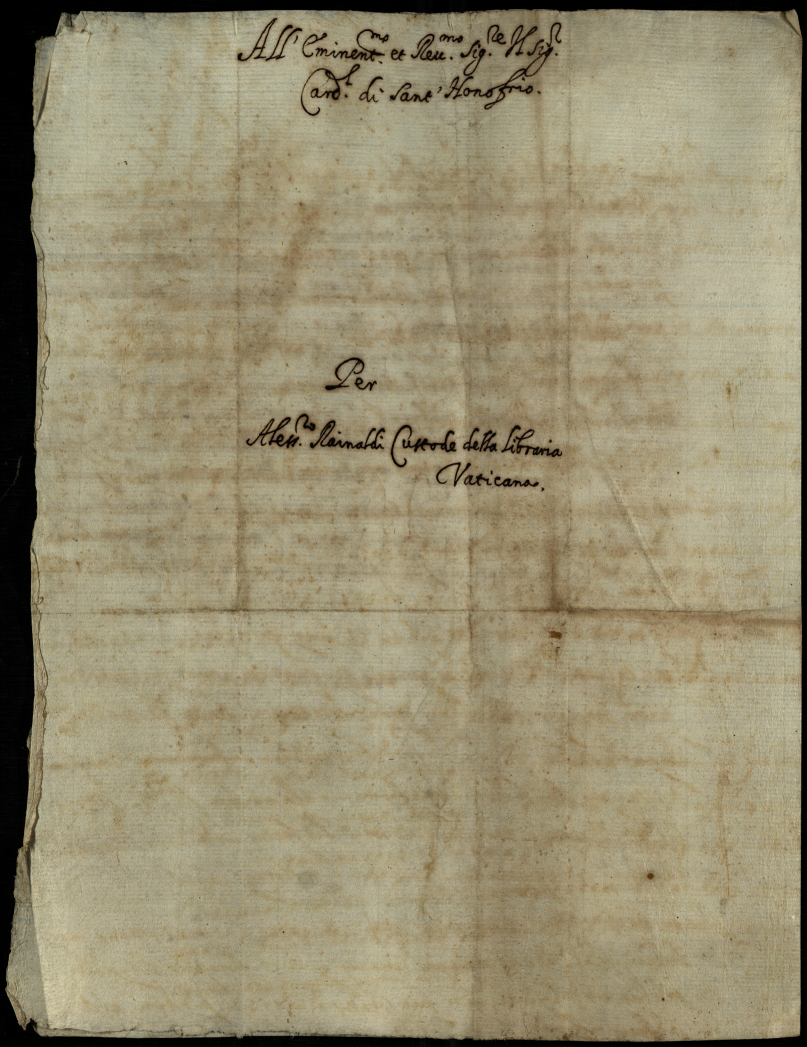 All' Eminent.mo et Reu.mo Sig.re Il Sig.r
Card.l di Sant' Honofrio.
Per
Aless.ro Rainaldi Custode della Libraria
Vaticana.